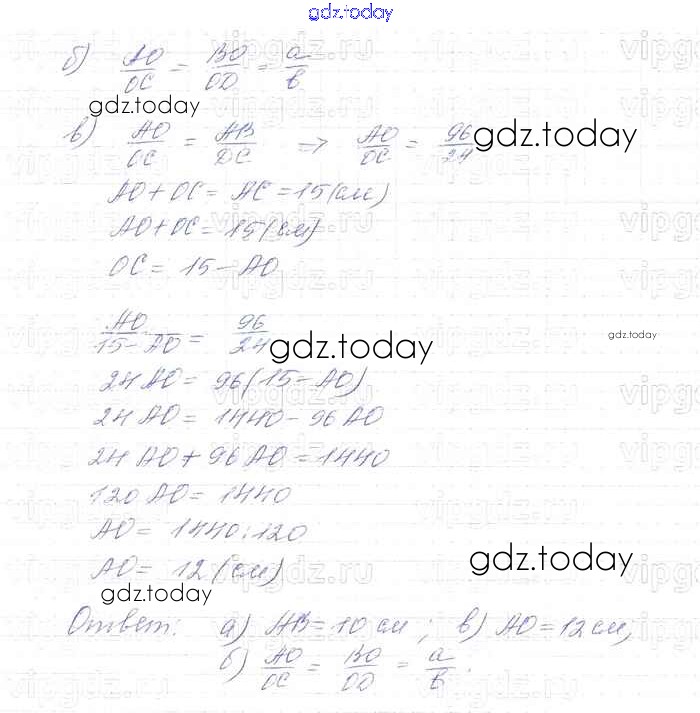 gdz.today
б) AO/OC = BO/OD = a/b
gdz.today
в) AO/OC = AB/DC => AO/OC = 96/24
gdz.today
AO + OC = AC = 15 (см)
AO + OC = 15 (см)
OC = 15 - AO
AO/15 - AO = 96/24
gdz.today
gdz.today
24 AO = 96 (15 - AO)
24 AO = 1440 - 96 AO
24 AO + 96 AO = 1440
120 AO = 1440
AO = 1440 : 120
AO = 12 (см)
gdz.today
gdz.today
Ответ: а) AB = 10 см; в) AO = 12 см;
б) AO/OC = BO/OD = a/b.